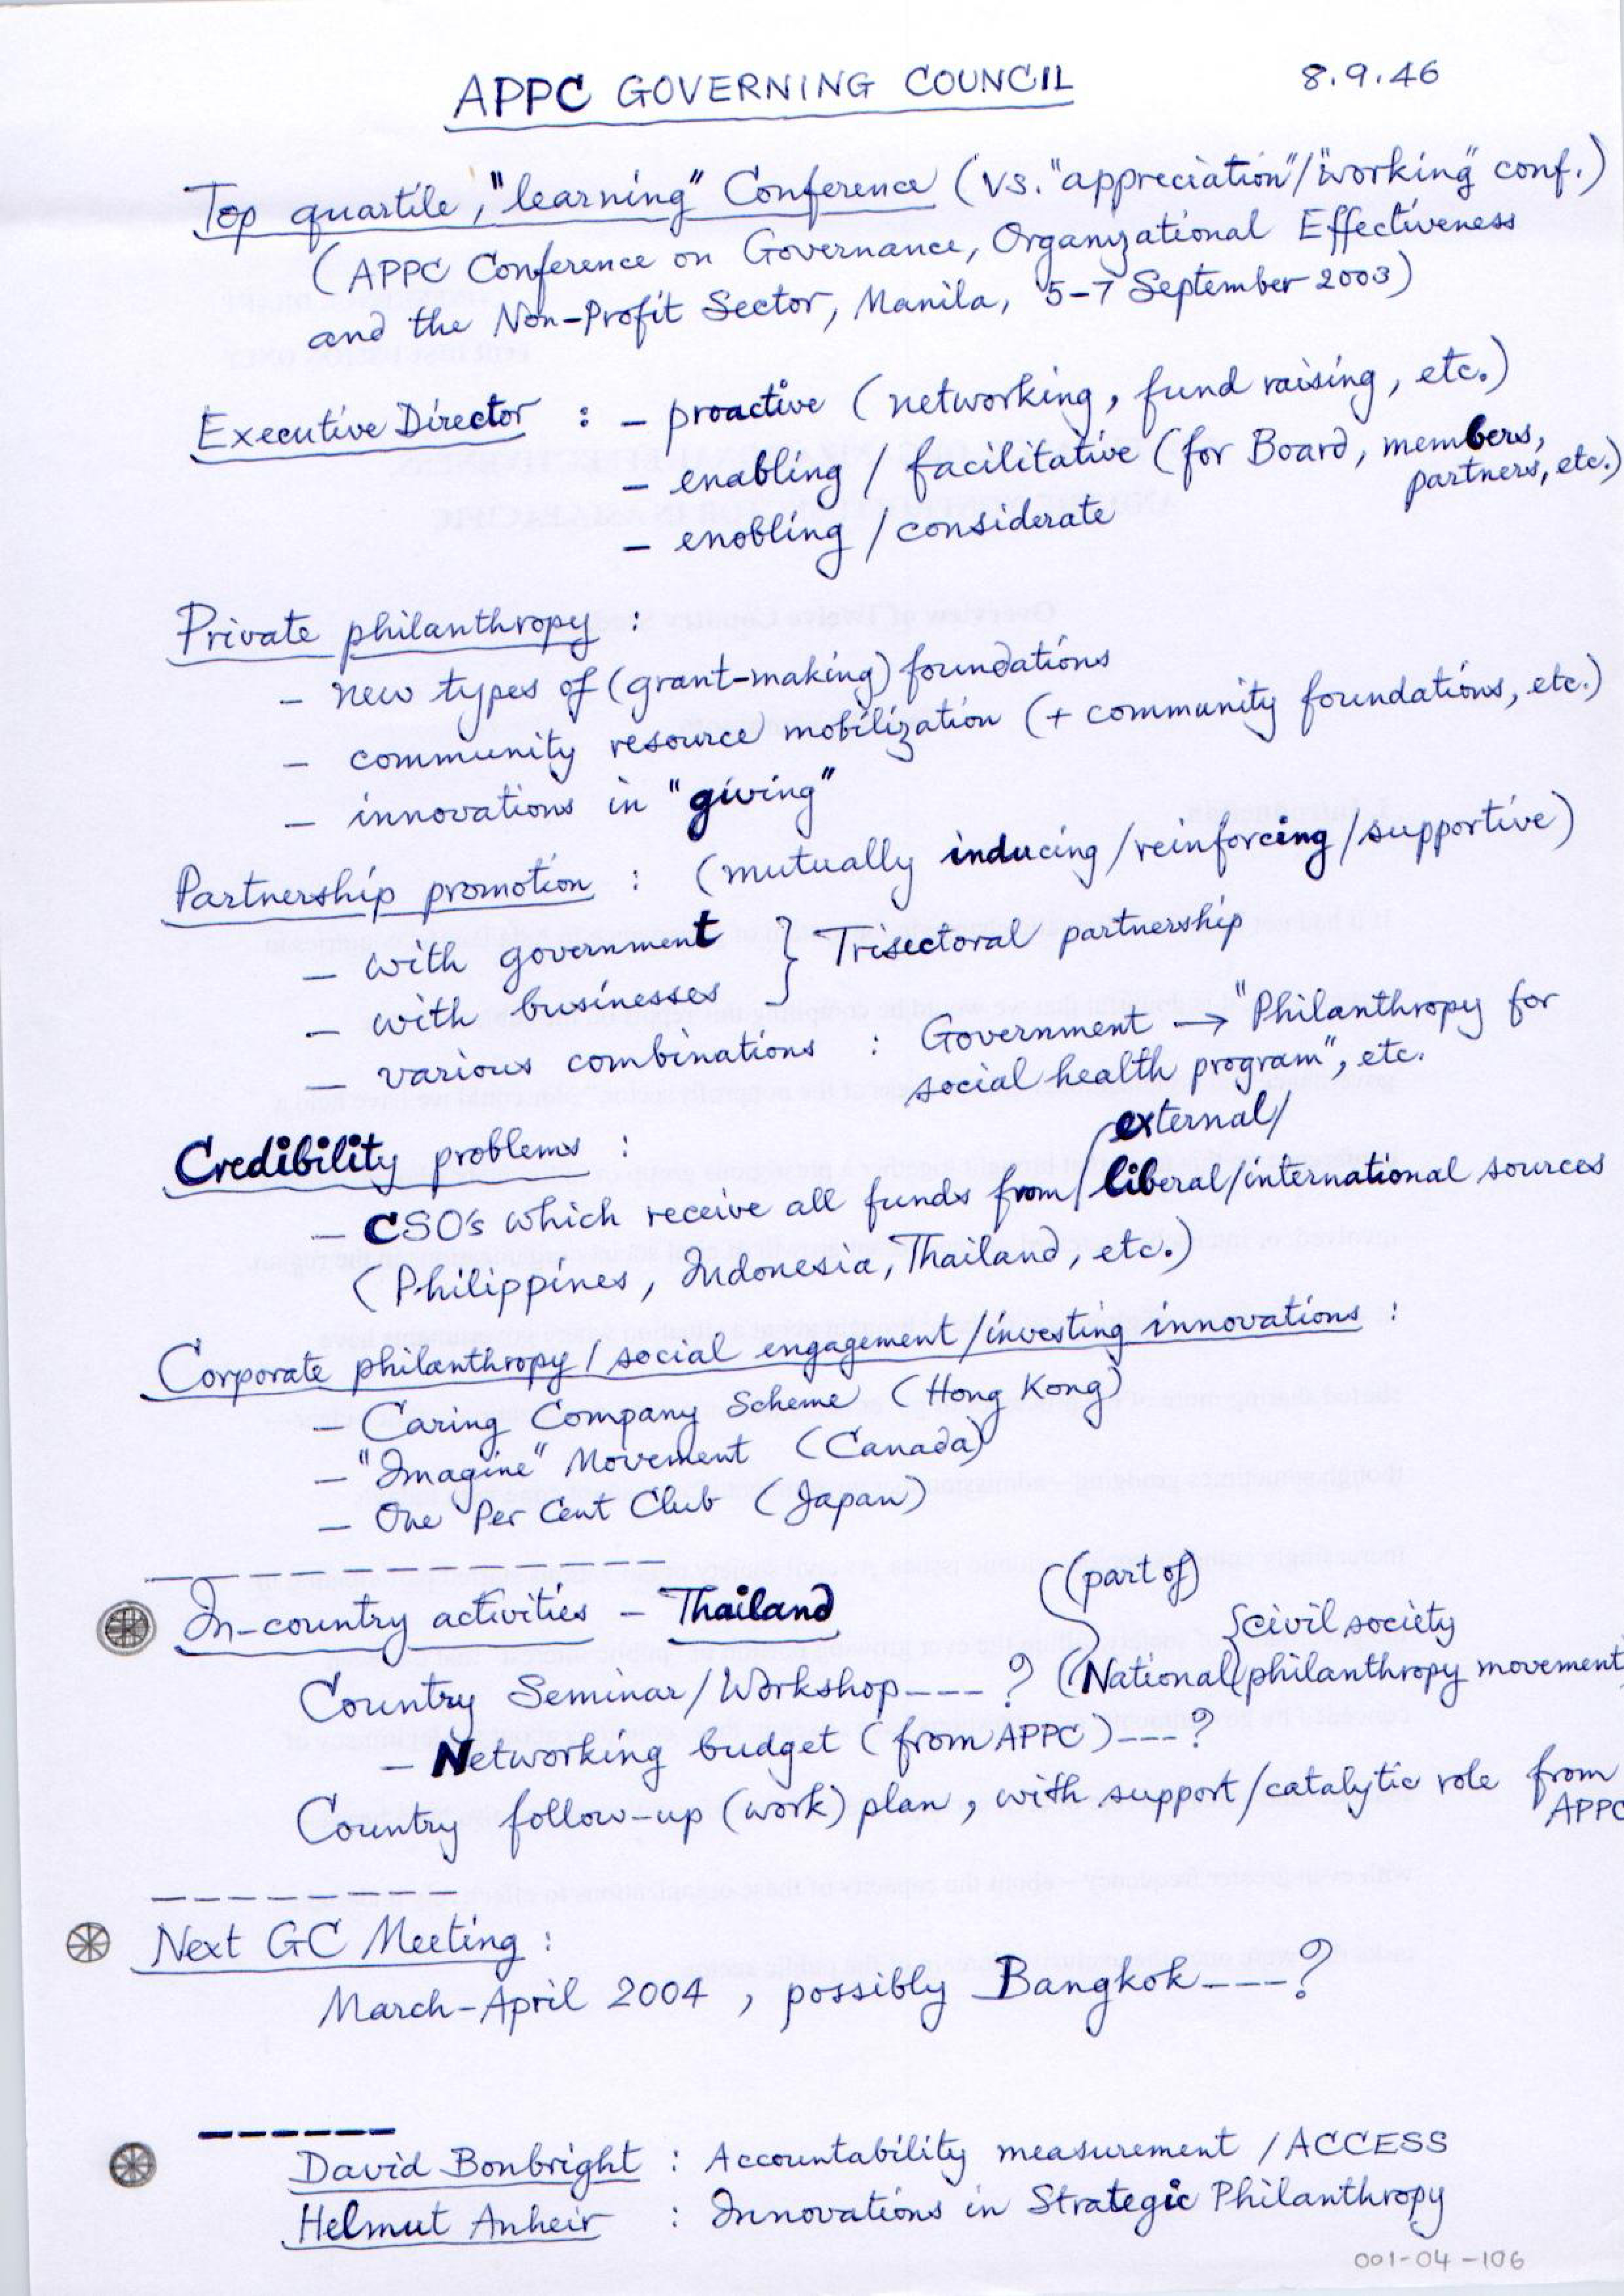 APPC GOVERNING COUNCIL 8.9.46
Top quartile, "learning" Conference (vs. "appreciation"/"working" conf.)
(APPC Conference on Governance, Organizational Effectiveness
and the Non-Profit Sector, Manila, 5-7 September 2003)
Executive Director : - proactive (networking, fund raising, etc.)
- enabling / facilitative (for Board, members,
partners, etc.)
- enobling / considerate
Private philanthropy :
- new types of (grant-making) foundations
- community resource mobilization (+ community foundations, etc.)
- innovations in "giving"
Partnership promotion : (mutually inducing/reinforcing/supportive)
- with government } Trisectoral partnership
- with businesses
- various combinations : Government → "Philanthropy for
social health program", etc.
Credibility problems :
external/
- CSO's which receive all funds from / liberal/international sources
(Philippines, Indonesia, Thailand, etc.)
Corporate philanthropy / social engagement / investing innovations :
- Caring Company Scheme (Hong Kong)
- "Imagine" Movement (Canada)
- One Per Cent Club (Japan)
In-country activities - Thailand
(part of)
{civil society
Country Seminar/Workshop---? (National {philanthropy movement)
- Networking budget (from APPC)---?
Country follow-up (work) plan, with support/catalytic role from
APPC
Next GC Meeting :
March-April 2004 , possibly Bangkok---?
David Bonbright : Accountability measurement / ACCESS
Helmut Anheir : Innovations in Strategic Philanthropy
001-04-106